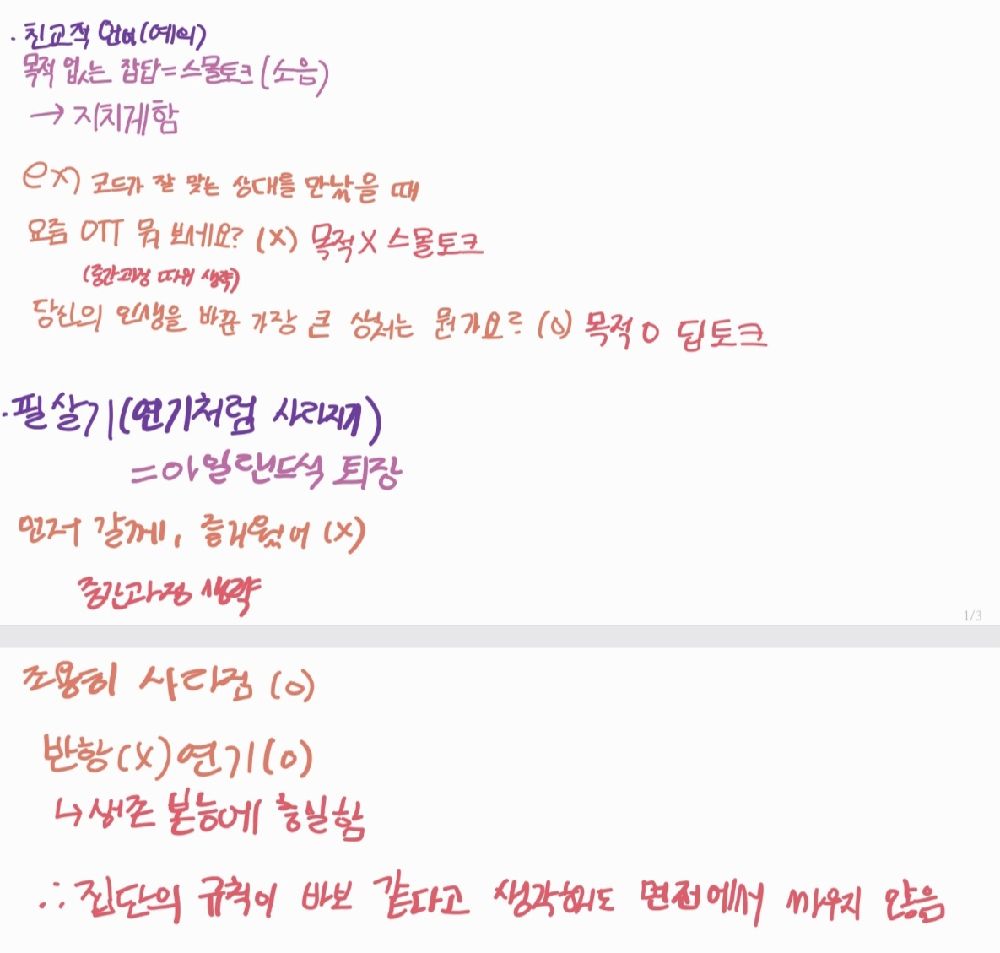 · 친교적 언어(예의)
목적 없는 잡담=스몰토크(소음)
→ 지치게함
ex) 코드가 잘 맞는 상대를 만났을 때
요즘 OTT 뭐 보세요? (X) 목적X 스몰토크
(중간과정 따위 생략)
당신의 인생을 바꾼 가장 큰 상처는 뭔가요? (O) 목적O 딥토크
·필살기(연기처럼 사라지기)
=아일랜드식 퇴장
먼저 갈께, 즐거웠어 (X)
중간과정 생략
1/3
조용히 사라짐 (O)
반항(X) 연기(O)
↳생존 본능에 충실함
∴집단의 규칙이 바보 같다고 생각해도 면전에서 싸우지 않음